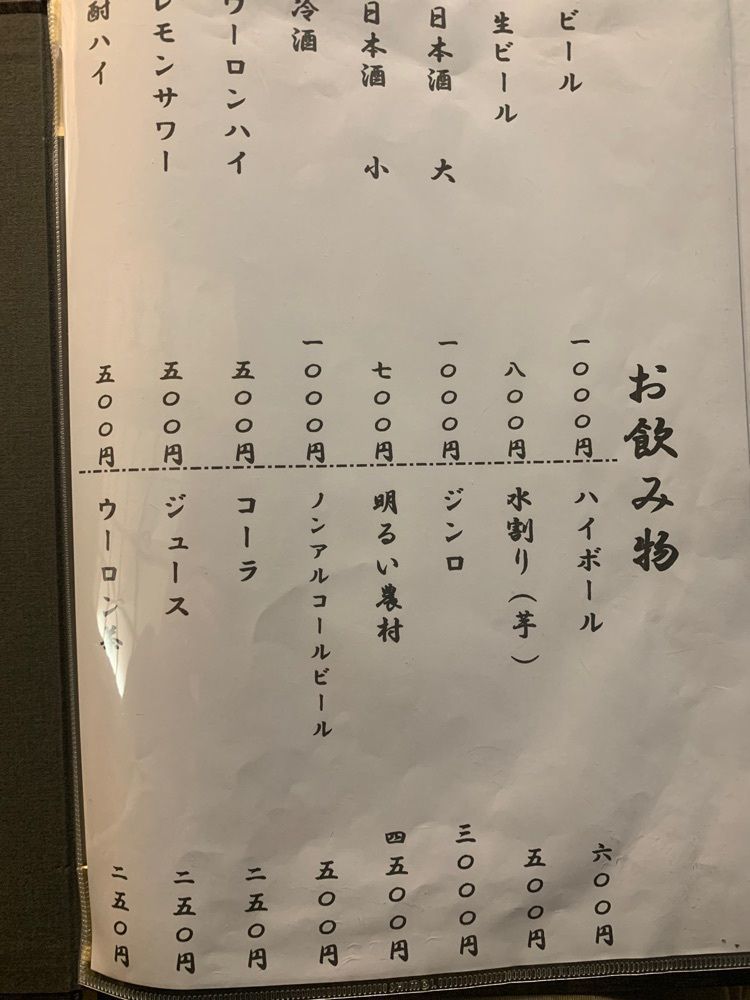 お飲み物
ビール 一〇〇〇円
生ビール 八〇〇円
日本酒 大 一〇〇〇円
日本酒 小 七〇〇円
冷酒 一〇〇〇円
ウーロンハイ 五〇〇円
レモンサワー 五〇〇円
酎ハイ 五〇〇円
ハイボール 六〇〇円
水割り（芋） 五〇〇円
ジンロ 三〇〇〇円
明るい農村 四五〇〇円
ノンアルコールビール 五〇〇円
コーラ 二五〇円
ジュース 二五〇円
ウーロン茶 二五〇円